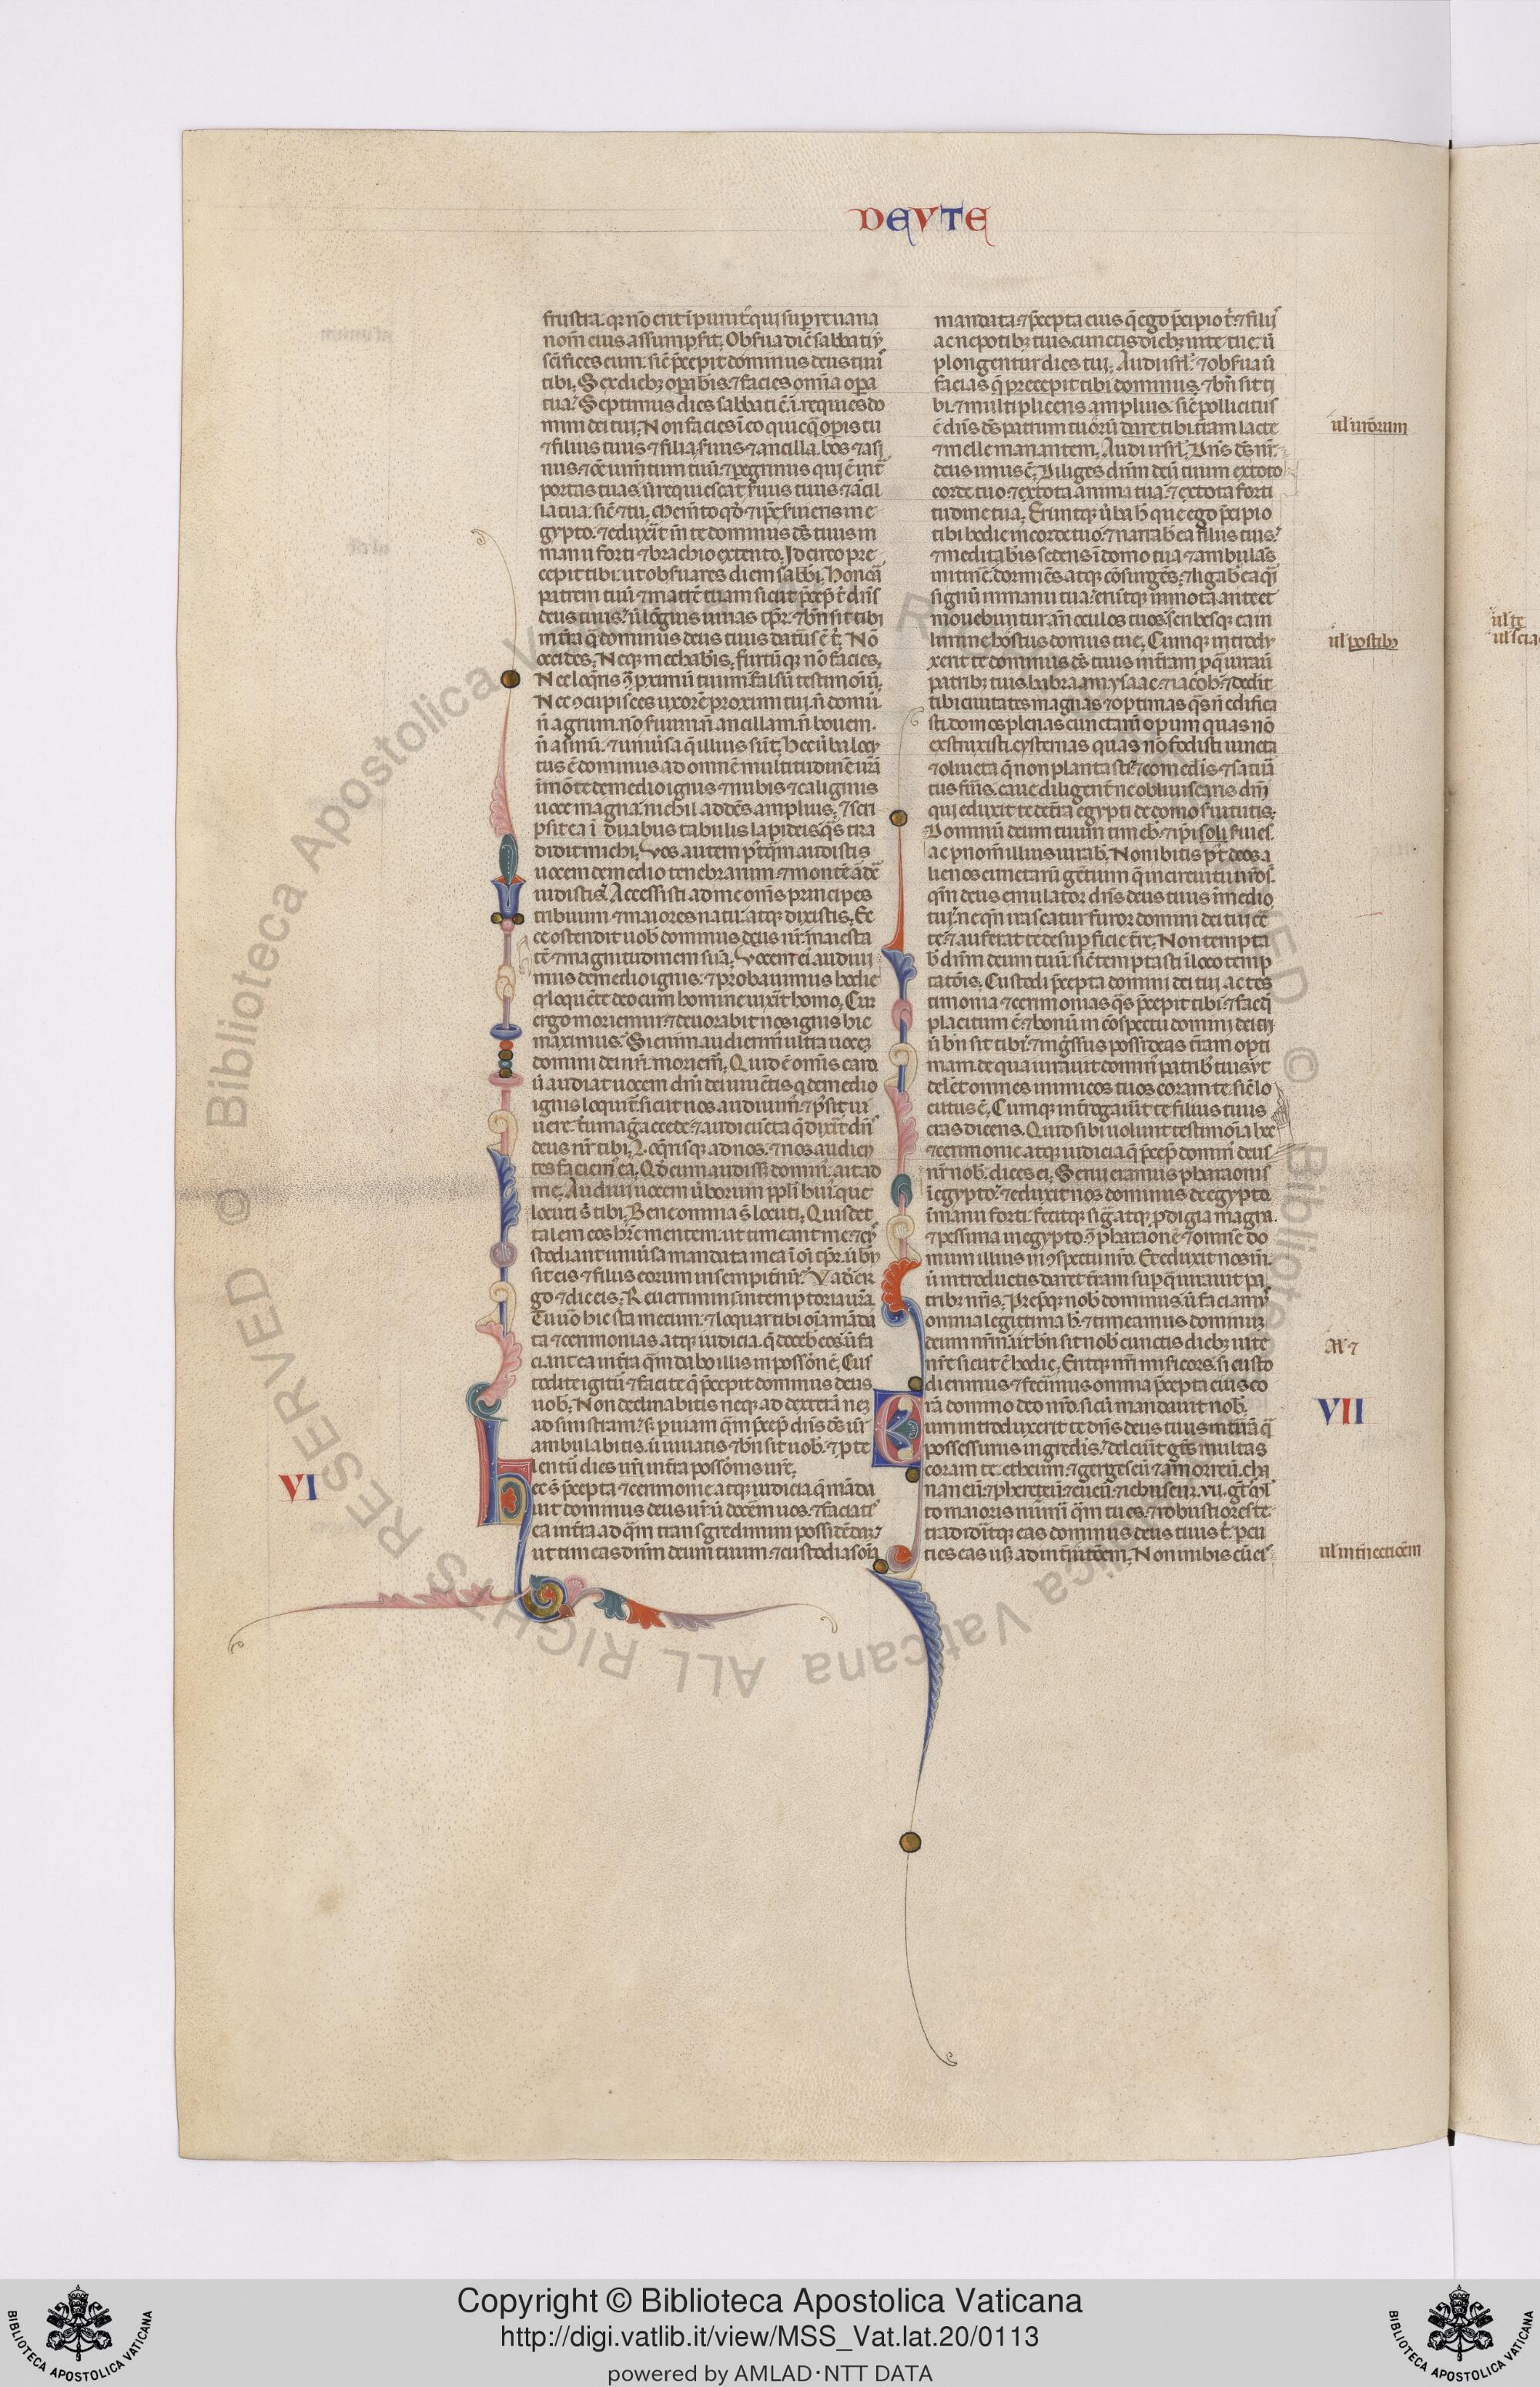 DEUTE
frustra. qr nō erit īpunit' qui sup re uana
nom̄ eius assumpserit. Obserua diē sabbati ut
scīfices eum. sič p̄cepit dominus deus tuus
tibi. Sex diebꝫ operabis. ⁊ facies omīa opera
tua. Septimus dies sabbati ē. i. requies do
mini dei tui. Non facies ī eo quicq̄ operis tu
⁊ filius tuus ⁊ filia. seruus ⁊ ancilla. bos ⁊ asi
nus. ⁊ oē iumētum tuū. ⁊ peregrinus qui ē int̄
portas tuas. ut requiescat seruus tuus. ⁊ ācil
la tua. sič ⁊ tu. Memento qd ⁊ ip̄e seruieris in e
gypto. ⁊ eduxit̄ in te dominus ds̄ tuus in
manu forti ⁊ brachio extento. Idcirco pre
cepit tibi. ut obseruares diem sabbi. Honora
patrem tuū ⁊ matrē tuam sicut p̄cep̄ t' dn̄s
deus tuus. ut lōgius uiuas tp̄r. ⁊ bn̄ sit tibi
in tr̄a q̄ dominus deus tuus daturus ē t'. Nō
occides. Neqꝫ mechaberis. furtūqꝫ nō facies.
Nec loqueris ꝯ proximū tuum falsū testimoniū.
Nec ꝯcupisces uxorē proximi tui. n̄ domū.
n̄ agrum. nō seruum. n̄ ancillam. n̄ bouem.
n̄ asinū. ⁊ uniuersa q̄ illius sūt. Hec uerba locu
tus ē dominus ad omnē multitudinē ur̄am
ī monte de medio ignis ⁊ nubis ⁊ caliginis
uoce magna. nichil addēs amplius. ⁊ scri
psit ea ī duabus tabulis lapideis. q̄s tra
didit michi. Vos autem p'tq̄m audistis
uocem de medio tenebrarum. ⁊ montē ardē
uidistis. Accessisti ad me omīs principes
tribuum ⁊ maiores natu. atqꝫ dixistis. Ec
ce ostendit nob' dominus deus nr̄. maiesta
tē ⁊ magnitudinem suā. Vocem ei' audiui
mus de medio ignis. ⁊ probauimus hodie
q̄ loquēte deo cum homine uixit homo. Cur
ergo moriemur. ⁊ deuorabit nos ignis hic
maximus. Si enim audierim' ultra uocem
domini dei nr̄i. moriem̄. Quid ē omīs caro
ut audiat uocem dn̄i dei uiuētis q̄ de medio
ignis loquit̄. sicut nos audiuim'. ⁊ possit ui
uere. tu magis accede. ⁊ audi cuncta q̄ dixit dn̄s
deus nr̄ tibi. loquerisqꝫ ad nos. ⁊ nos audien
tes faciem' ea. Qd cum audisset domin'. ait ad
me. Audiui uocem uerborum ppli hui' que
locuti st̄ tibi. Bene omnia st̄ locuti. Quis det
talem eos hr̄e mentem. ut timeant me. ⁊ cu
stodiant uniuersa mandata mea ī oī tp̄r. ut bn̄
sit eis ⁊ filiis eorum in sempiternum. Vade er
go ⁊ dic eis. Reuertimini in temptoria ur̄a.
Tu uo hic sta mecum. ⁊ loquar tibi oīa māda
ta ⁊ cerimonias atqꝫ iudicia. q̄ doceb' eos ut fa
ciant ea in tr̄a q̄m dabo illis in possōnē. Cus
todite igit̄ ⁊ facite q̄ p̄cepit dominus deus
uob'. Non declinabitis neqꝫ ad dexterā neqꝫ
ad sinistram. sꝫ p uiam q̄m p̄cep̄ dn̄s ds̄ ur̄
ambulabitis. ut uiuatis ⁊ bn̄ sit uob'. ⁊ p te
lent̄ dies ur̄i in tr̄a possōnis ur̄e.
VI
Hec st̄ p̄cepta ⁊ cerimonie atqꝫ iudicia q̄ māda
uit dominus deus ur̄. ut docerem uos. ⁊ faciatis
ea in tr̄a ad q̄m transgredimini possidēdaꝫ.
ut timeas dn̄m deum tuum. ⁊ custodias oīa
mandata. ⁊ p̄cepta eius q̄ ego p̄cipio t'. ⁊ filiis
ac nepotibꝫ tuis. cunctis diebꝫ uite tue. ut
plongentur dies tui. Audi isrl̄. ⁊ obserua ut
facias q̄ precepit tibi dominus. ⁊ bn̄ sit ti
bi. ⁊ multipliceris amplius. sič pollicitus
ē dn̄s ds̄ patrum tuōrū dare tibi. tr̄am lacte
⁊ melle manantem. Audi isrl̄. Dn̄s ds̄ nr̄.
deus unus ē. Diliges dn̄m deū tuum ex toto
corde tuo. ⁊ ex tota anima tua. ⁊ ex tota forti
tudine tua. Eruntqꝫ uerba h' que ego p̄cipio
tibi hodie in corde tuo. ⁊ narrab' ea filiis tuis.
⁊ meditaberis sedens ī domo tua ⁊ ambulās
in itinē. dormiēs atqꝫ cōsurgēs. ⁊ ligab' ea q̄si
signū in manu tua. erūtqꝫ inmota ante et
mouebuntur an̄ oculos tuos. scribesqꝫ eam
limine hostus domus tue. Cumqꝫ introdu
xerit te dominus ds̄ tuus in tr̄am p q̄ iurauit
patribꝫ tuis. habraam. ysaac. ⁊ iacob. ⁊ dedit
tibi ciuitates magnas ⁊ optimas q̄s n̄ edifica
sti. domos plenas cunctarū opum quas nō
exstruxisti. cysternas quas nō fodisti. uineta
⁊ oliueta q̄ non plantasti. ⁊ comederis ⁊ satura
tus fueris. caue diligent̄ ne obliuiscaris dn̄i
qui eduxit te de tr̄a egypti de domo seruitutis.
Dominū deum tuum timeb'. ⁊ ipi soli seruies.
ac p nom̄ illius iurab'. Non ibitis p't deos a
lienos cunctarū gētium q̄ in circuitu ur̄o s̄.
qm̄ deus emulator dn̄s deus tuus in medio
tui. ne qn̄ irascatur furor domini dei tui cō
te. ⁊ auferat te de superficie tr̄e. Non tempta
b' dn̄m deum tuū. sič temptasti ī loco temp
tatōis. Custodi p̄cepta domini dei tui. ac tes
timonia ⁊ cerimonias q̄s p̄cepit tibi. ⁊ fac q̄
placitum ē ⁊ bonū in cōspectu domini dei tui
ut bn̄ sit tibi. ⁊ ing̃ssus possideas tr̄am opti
mam. de qua iurauit domin' patribꝫ tuis. ut
deleret omnes inimicos tuos coram te. sič lo
cutus ē. Cumqꝫ int̄rogauerit te filius tuus
cras dicens. Quid sibi uolunt testimonia hec
⁊ cerimonie atqꝫ iudicia q̄ p̄cep̄ domin' deus
nr̄ nob'. dices ei. Serui eramus pharaonis
ī egypto. ⁊ eduxit nos dominus de egypto
ī manu forti. fecitqꝫ sig̃ atqꝫ pdigia magna.
⁊ pessima in egypto. ꝯ pharaonē ⁊ omnē do
mum illius in ꝯspectu nr̄o. Et eduxit nos in.
ut introductis daret tr̄am sup q̄ iurauit pa
tribꝫ nr̄is. Precepitqꝫ nob' dominus. ut faciam'
omnia legittima h'. ⁊ timeamus dominuꝫ
deum nr̄m. ut bn̄ sit nob' cunctis diebꝫ uite
nr̄e sicut ē hodie. Eritqꝫ nr̄i misericors. si custo
dierimus ⁊ fecerimus omnia p̄cepta eius co
rā domino deo nr̄o. sicut mandauit nob'.
VII
Cum introduxerit te dn̄s deus tuus in tr̄a q̄
possessurus ingrederis. ⁊ deleuerit gētes multas
coram te. etheum. ⁊ gergeseū. ⁊ amorreū. cha
naneū. ⁊ pherezeū. ⁊ eueū. ⁊ iebuseum. vii. gētes ml
to maioris num̄i q̄m tu es. ⁊ robustiores te.
tradideritqꝫ eas dominus deus tuus t'. pcu
ties eas usqꝫ ad int̄nitōem. Non inibis cū eis
ul' ur̄orum
ul' postibꝫ
al' ⁊
ul' in int̄nectiōem
ul' te
Copyright © Biblioteca Apostolica Vaticana
http://digi.vatlib.it/view/MSS_Vat.lat.20/0113
powered by AMLAD·NTT DATA
BIBLIOTECA APOSTOLICA VATICANA
BIBLIOTECA APOSTOLICA VATICANA
© Biblioteca Apostolica Vaticana ALL RIGHTS RESERVED